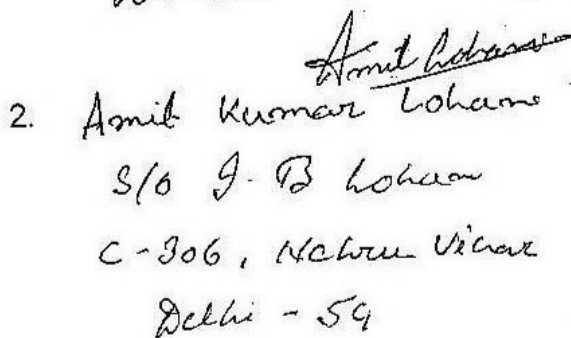 Amit Lohani
2. Amit Kumar Lohani
S/o J. B Lohani
C-306, Nehru Vihar
Delhi - 54